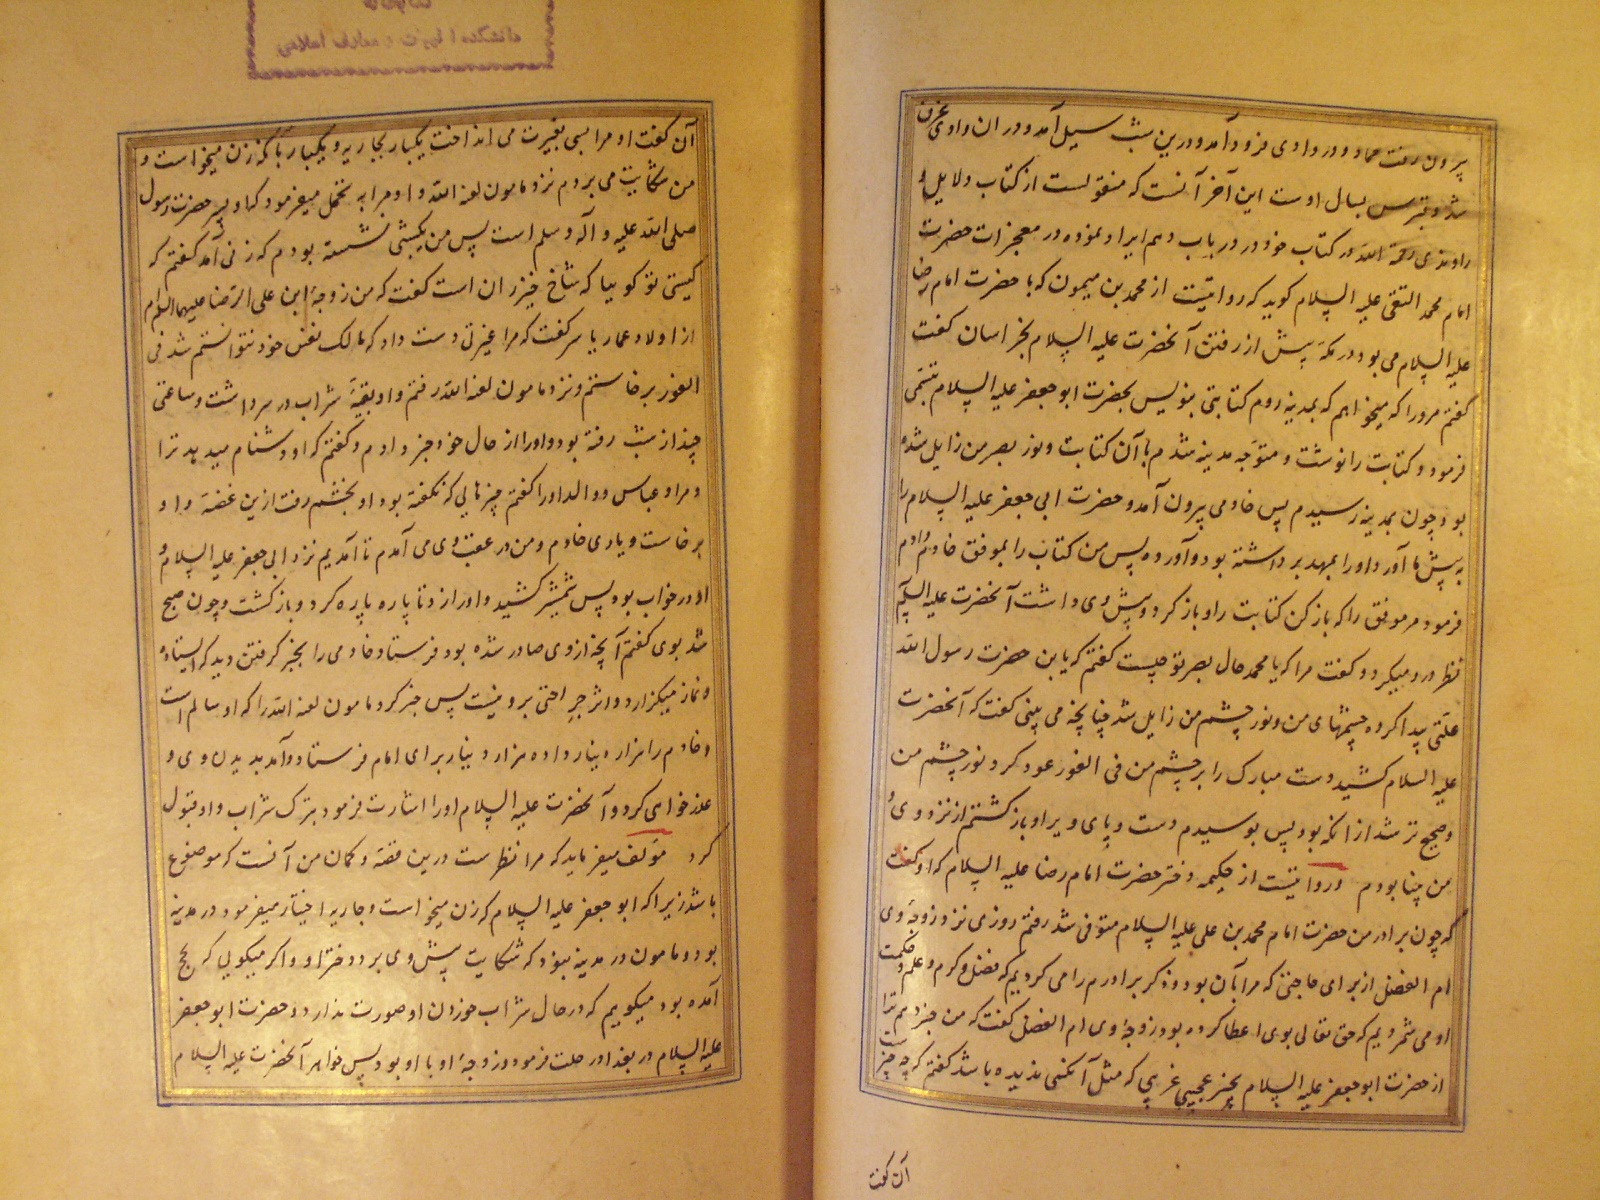 بیرون رفت حماد و در وادی فرود آمد و درین شب سیل آمد و در ان وادی غرق
شد و قبرس بسال اوست این آخر آنست که منقولست از کتاب دلایل و
راوندی رحمة الله در کتاب خود در باب دهم ایراد نموده در معجزات حضرت
امام محمد التقی علیه السلام گوید که روایتست از محمد بن میمون که با حضرت امام رضا
علیه السلام می بود در مکه پیش از رفتن آنحضرت علیه السلام بخراسان گفت
گفتم مرورا که میخواهم که بمدینه روم کتابتی بنویس بحضرت ابو جعفر علیه السلام تبسّمی
فرمود و کتابت را نوشت و متوجه مدینه شدم با آن کتابت و نور بصر من زایل شده
بود چون بمدینه رسیدم پس خادمی بیرون آمد و حضرت ابی جعفر علیه السلام را
به پیش ما آورد و اورا بمهد برداشته بود و آورده پس من کتاب را بموفق خادم دادم
فرمود مر موفق را که باز کن کتابت را و باز کرد و پیش وی داشت آنحضرت علیه السلام
نظر در و میکرد و گفت مرا که یا محمد حال بصر تو چیست گفتم که یا بن حضرت رسول الله
علتی پیدا کرده چشمهای من و نور چشم من زایل شد چنانچه می بینی گفت که آنحضرت
علیه السلام کشید دست مبارک را بر چشم من فی الفور عود کرد نور چشم من
و صحیح تر شد از انکه بود پس بوسیدم دست و پای ویرا و بازگشتم از نزد وی و
من بینا بودم و روایتست از حکیمه دختر حضرت امام رضا علیه السلام که او گفت
که چون برادر من حضرت امام محمد بن علی علیه السلام متوفی شد رفتم روزی نزد زوجهٔ وی
ام الفضل از برای حاجتی که مرا بآن بود و ذکر برادرم را می کردیم که فضل و کرم و علم و حکمت
او می شمردیم که حق تعالی بوی اعطا کرده بود زوجهٔ وی ام الفضل گفت که من خبر دهم ترا
از حضرت ابو جعفر علیه السلام بچیز عجیبی غریبی که مثل آن کسی ندیده باشد گفتم که چه چیز است
آن گفت
آن گفت او مرا بسی بغیرت می انداخت یکبار بجاریه و یکبار با که زن میخواست و
من شکایت می بردم نزد مامون لعنه الله و او مرا به تحمل میفرمود که او پسر حضرت رسول
صلی الله علیه و آله و سلم است پس من یکشبی نشسته بودم که زنی آمد گفتم که
کیستی تو گویا که شاخ خیزران است گفت که من زوجهٔ ابن علی الرضا علیهما السلام
از اولاد عمار یاسر گفت که مرا غیرتی دست داد که مالک نفس خود نتوانستم شد فی
الفور برخاستم و نزد مامون لعنه الله رفتم و او بقیهٔ شراب در سر داشت و ساعتی
چند از شب رفته بود و اورا از حال خود خبر دادم و گفتم که او دشنام میدهد ترا
و مرا و عباس و والد او را گفتم چیزهایی که نگفته بود او بخشم رفت ازین غصه و او
برخاست و یاری خادم و من در عقب وی می آمدم تا آمدیم نزد ابی جعفر علیه السلام و
او در خواب بود پس شمشیر کشید و اورا زد تا پاره پاره کرد و بازگشت و چون صبح
شد بوی گفتم آنچه از وی صادر شده بود فرستاد خادمی را بخبر گرفتن دید که ایستاده
نماز میگزارد و اثر جراحتی برو نیست پس خبر کرد مامون لعنه الله را که او سالم است
و خادم را هزار دینار داده هزار دینار برای امام فرستاد و آمد بدیدن وی و
عذر خواهی کرد و آنحضرت علیه السلام اورا اشارت فرمود بترک شراب و او قبول
کرد مولف میفرماید که مرا نظر ست درین قصه و گمان من آنست که موضوع
باشد زیرا که ابو جعفر علیه السلام که زن میخواست و جاریه اختیار میفرمود در مدینه
بود و مامون در مدینه نبود که شکایت پیش وی برد دختر او و اگر میگویی که بحج
آمده بود میگوییم که در حال شراب خوردن او صورت ندارد و حضرت ابو جعفر
علیه السلام در بغداد رحلت فرمود و زوجهٔ او با او بود پس خواهر آنحضرت علیه السلام